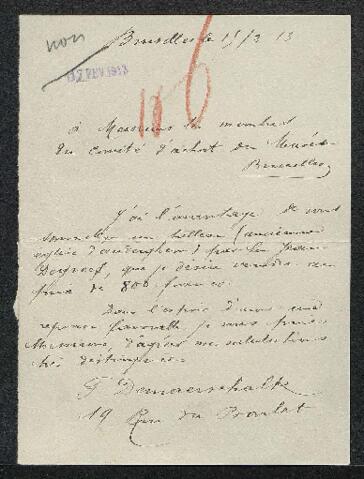 non
Bruxelles le 15/2 13
17 FEV. 1913
186
à Messieurs les membres
du comité d'achat du Musée
Bruxelles
J'ai l'avantage de vous
soumettre un tableau (ancienne
église d'auderghem) par feu Jean
Degreef, que je désire vendre au
prix de 800 francs.
Dans l'espoir d'une
réponse favorable je vous prie
Messieurs, d'agréer mes salutations
très distinguées.
F Demaerschalk
19 Rue du